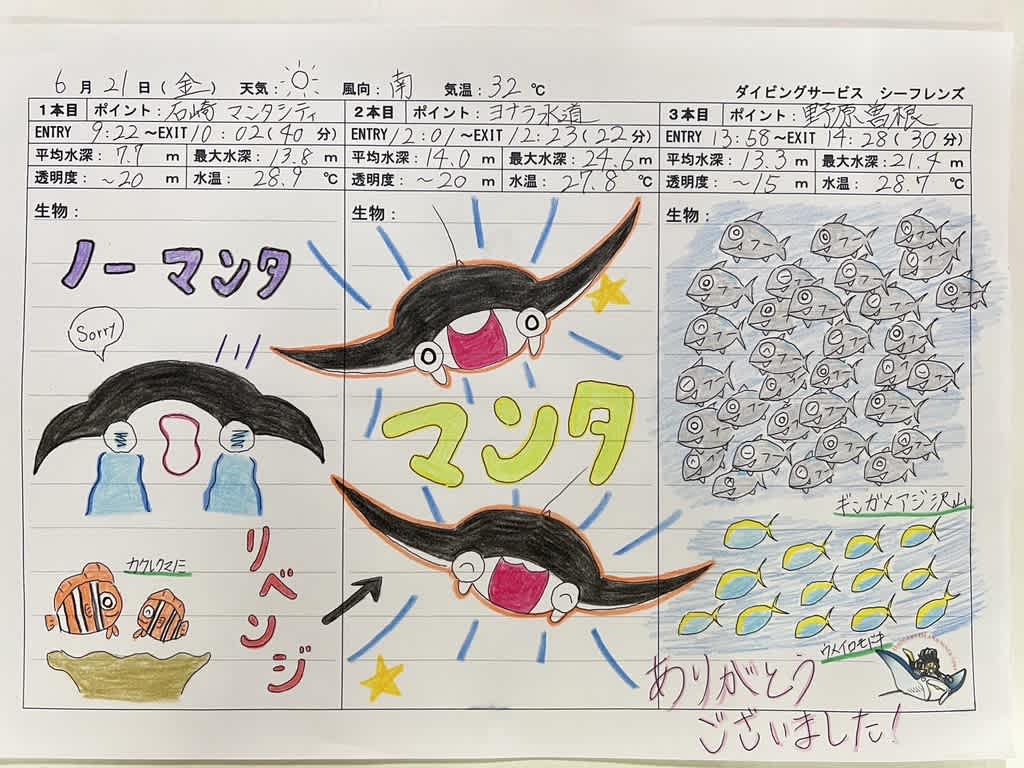 6月21日(金) 天気: 風向:南 気温:32℃
ダイビングサービス シーフレンズ
1本目 ポイント:石崎 マンタシティ
ENTRY 9:22~EXIT 10:02(40分)
平均水深:7.7m 最大水深:13.8m
透明度:~20m 水温:28.9℃
生物:
ノーマンタ
Sorry
カクレクマニ
リベンジ
2本目 ポイント:ヨナラ水道
ENTRY 12:01~EXIT 12:23(22分)
平均水深:14.0m 最大水深:24.6m
透明度:~20m 水温:27.8℃
生物:
マンタ
3本目 ポイント:野原曽根
ENTRY 13:58~EXIT 14:28(30分)
平均水深:13.3m 最大水深:21.4m
透明度:~15m 水温:28.7℃
生物:
ギンガメアジ沢山
ウメイロモドキ
ありがとう
ございました!